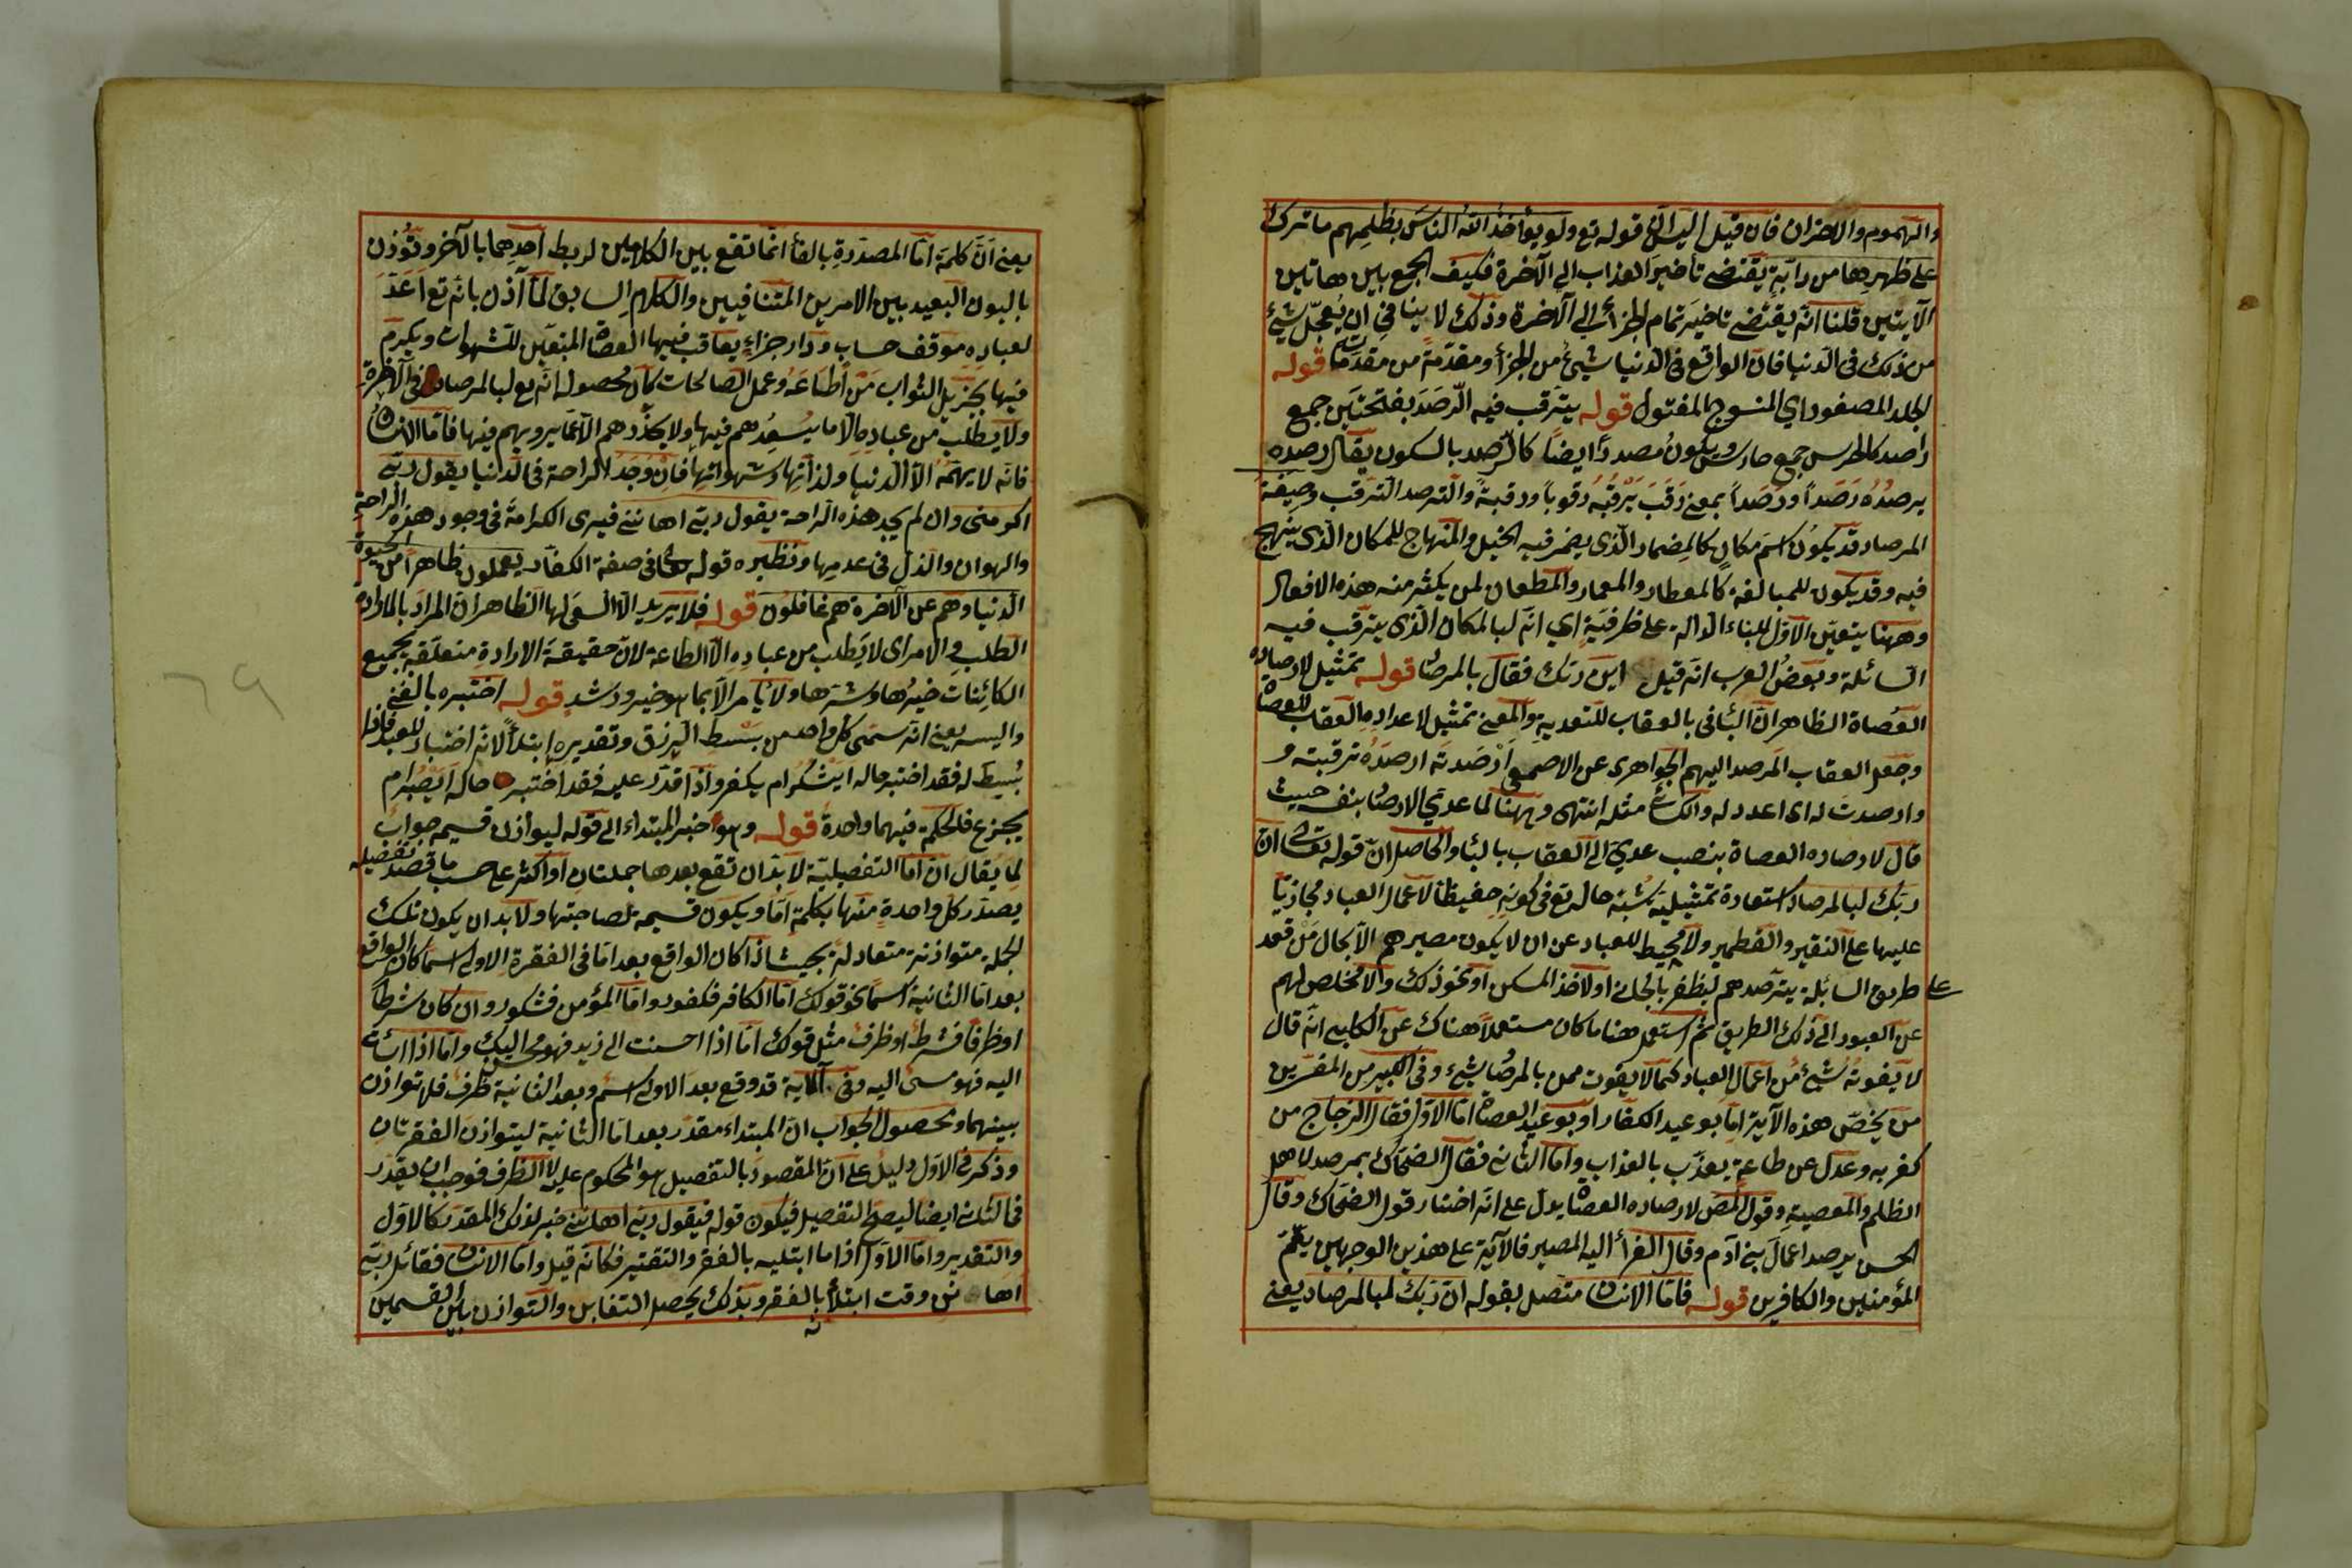 والهموم والاحزان فان قيل اليس ان قوله تع ولو يؤاخذ الله الناس بظلمهم ما ترك
على ظهرها من دابة يقتضى تأخير العذاب الى الآخرة فكيف الجمع بين هاتين
الآيتين قلنا انه يقتضى تاخير تمام الجزأ الى الآخرة وذلك لا ينافى ان يعجل شيئ
من ذلك فى الدنيا فان الواقع فى الدنيا شيئ من الجزأ ومقدمة من مقدماته قوله
الجلد المصفور اي المنسوج المفتول قوله يترقب فيه الرصد بفتحتين جمع
راصد كالحرس جمع حارس ويكون مصدرا ايضا كالرصد بالسكون يقال رصده
يرصده رصدا ورصدا بمعنى رقب يرقبه رقوبا ورقبة والترصد الترقب وصيغة
المرصاد قد يكون اسم مكان كالمضمار الذى يضمر فيه الخيل والمنهاج للمكان الذى ينهج
فيه وقد يكون للمبالغة كالمعطار والمعمار والمطعان لمن يكثر منه هذه الافعال
وههنا يتعين الاول للباء الدالة على ظرفية اي انه لبالمكان الذى يترقب فيه
السائلة وبعض العرب انه قيل اين ربك فقال بالمرصاد قوله تمثيل لارصاده
العصاة الظاهر ان البأ فى بالعقاب للتعدية والمعنى تمثيل لاعداده العقاب للعصاة
وجعل العقاب المرصد اليهم الجواهرى عن الاصمعى ارصدته ارصده ترقبته و
وارصدت له اى اعددت له والكسائى مثله انتهى وههنا لما عدي الارصاد بنفسه حيث
قال لارصاده العصاة بنصب عدي الى العقاب بالبأ والحاصل ان قوله تعالى ان
ربك لبالمرصاد استعارة تمثيلية شبه حاله تع فى كونه حفيظا لاعمال العباد مجازيا
عليها على النقير والقطمير ولا محيط للعباد عن ان لا يكون مصيرهم الا بحال من قعد
على طريق السائلة يترصدهم ليظفر بالجانى او لاخذ المكس او نحو ذلك والامخلص لهم
عن العبور الى ذلك الطريق ثم استعمل هنا ما كان مستعملا هناك عن الكلبى انه قال
لا يفوته شيئ من اعمال العباد كما لا يفوت ممن بالمرصاد شيئ وفى الكبير من المفسرين
من يخص هذه الآية اما بوعيد الكفار او بوعيد العصاة اما الاول فقال الزجاج من
كفر به وعدل عن طاعته يعذب بالعذاب واما الثانى فقال الضحاك بمرصد لاهل
الظلم والمعصية وقول المص لارصاده العصاة يدل على انه اختار قول الضحاك وقال
الحسن يرصد اعمال بنى آدم وقال الفرأ اليه المصير فالآية على هذين الوجهين يعم
المؤمنين والكافرين قوله فاما الانسان متصل بقوله ان ربك لبالمرصاد يعنى
يعنى ان كلمة اما المصدرة بالفأ انما تقع بين الكلامين لربط احدهما بالآخر وتؤذن
بالبون البعيد بين الامرين المتنافيين والكلام السابق لما آذن بانه تع اعد
لعباده موقف حساب ودار جزاء يعاقب فيها العصاة المتبعين للشهوات ويكرم
فيها بجزيل الثواب من اطاعه وعمل الصالحات كان محصوله انه تع لبالمرصاد فى الآخرة
ولا يطلب من عباده الا ما يسعدهم فيها ولا يحذرهم الا عما يرويهم فيها فاما الانسان
فانه لا يهمه الا الدنيا ولذاتها وشهواتها فان وجد الراحة فى الدنيا يقول ربى
اكرمنى وان لم يجد هذه الراحة يقول ربى اهاننى فيرى الكرامة فى وجود هذه الراحة
والهوان والذل فى عدمها ونظيره قوله تعالى فى صفة الكفار يعملون ظاهرا من الحيوة
الدنيا وهم عن الآخرة هم غافلون قوله فلا يريد الا السعى لها الظاهر ان المراد بالارادة
الطلب والامر اى لا يطلب من عباده الا الطاعة لان حقيقة الارادة متعلقة بجميع
الكائنات خيرها وشرها ولا يأمر الا بما هو خير ورشد قوله اختبره بالغنى
واليسر يعنى انه سمى كل واحد من بسط الرزق وتقديره ابتلأ لانه اختبار للعبد فاذا
بسط له فقد اختبر حاله ايشكر ام يكفر واذا قدر عليه فقد اختبر حاله ايصبر ام
يجزع فالحكمة فيهما واحدة قوله وهو خبر المبتداء الى قوله ليوازن قسيمه جواب
لما يقال ان اما التفصيلية لا بد ان تقع بعدها جملتان او اكثر على حسب ما قصد تفصيله
يصدر كل واحدة منها بكلمة اما ويكون قسيمه لصاحبتها ولا بد ان يكون تلك
الجملة متوازنة متعادلة بحيث اذا كان الواقع بعد اما فى الفقرة الاولى اسما كان الواقع
بعد اما الثانية اسما نحو قولك اما الكافر فكفور واما المؤمن فشكور وان كان شرطا
او ظرفا فشرط او ظرف مثل قولك اما اذا احسنت الى زيد فهو محسن اليك واما اذا اسأت
اليه فهو مسئ اليه وفى الآية قد وقع بعد الاولى اسم وبعد الثانية ظرف فلا توازن
بينهما ومحصول الجواب ان المبتداء مقدر بعد اما الثانية ليتوازن الفقرتان
وذكره فى الاول دليل على ان المقصود بالتفصيل هو المحكوم عليه لا الظرف فوجب ان يقدر
فى الثانى ايضا ليصح التفصيل فيكون قوله فيقول ربى اهاننى خبر لذلك المقدر كالاول
والتقدير واما الاول اذا ما ابتليه بالفقر والتقتير فكانه قيل واما الانسان فقائل ربى
اهاننى وقت ابتلأ بالفقر وبذلك يحصل التقابل والتوازن بين القسمين